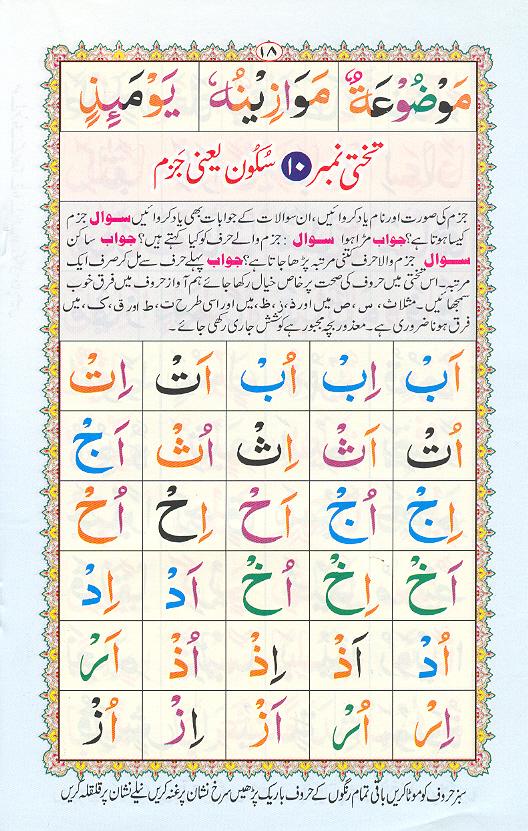 ۱۸
مَوْضُوْعَةٌ مَوَازِيْنُهٗ يَوْمَىِٕذٍ
تختی نمبر ۱۰ سُکُون یعنی جَزم
جزم کی صورت اور نام یاد کروائیں، ان سوالات کے جوابات بھی یاد کروائیں سوال جزم
کیسا ہوتا ہے؟ جواب مڑا ہوا سوال : جزم والے حرف کو کیا کہتے ہیں؟ جواب ساکن
سوال جزم والا حرف کتنی مرتبہ پڑھا جاتا ہے؟ جواب پہلے حرف سے مل کر صرف ایک
مرتبہ۔ اس تختی میں حروف کی صحت پر خاص خیال رکھا جائے ہم آواز حروف میں فرق خوب
سمجھائیں۔ مثلاً ث، س، ص میں اور ذ، ز، ظ، میں اور اسی طرح ت، ط اور ق، ک، میں
فرق ہونا ضروری ہے۔ معذور بچہ مجبور ہے کوشش جاری رکھی جائے۔
اَبْ اِبْ اُبْ اَتْ اِتْ
اُتْ اَثْ اِثْ اُثْ اَجْ
اِجْ اُجْ اَحْ اِحْ اُحْ
اَخْ اِخْ اُخْ اَدْ اِدْ
اُدْ اَذْ اِذْ اُذْ اَرْ
اِرْ اُرْ اَزْ اِزْ اُزْ
سبز حروف کو موٹا کریں باقی تمام رنگوں کے حروف باریک پڑھیں سرخ نشان پر غنہ کریں نیلے نشان پر قلقلہ کریں